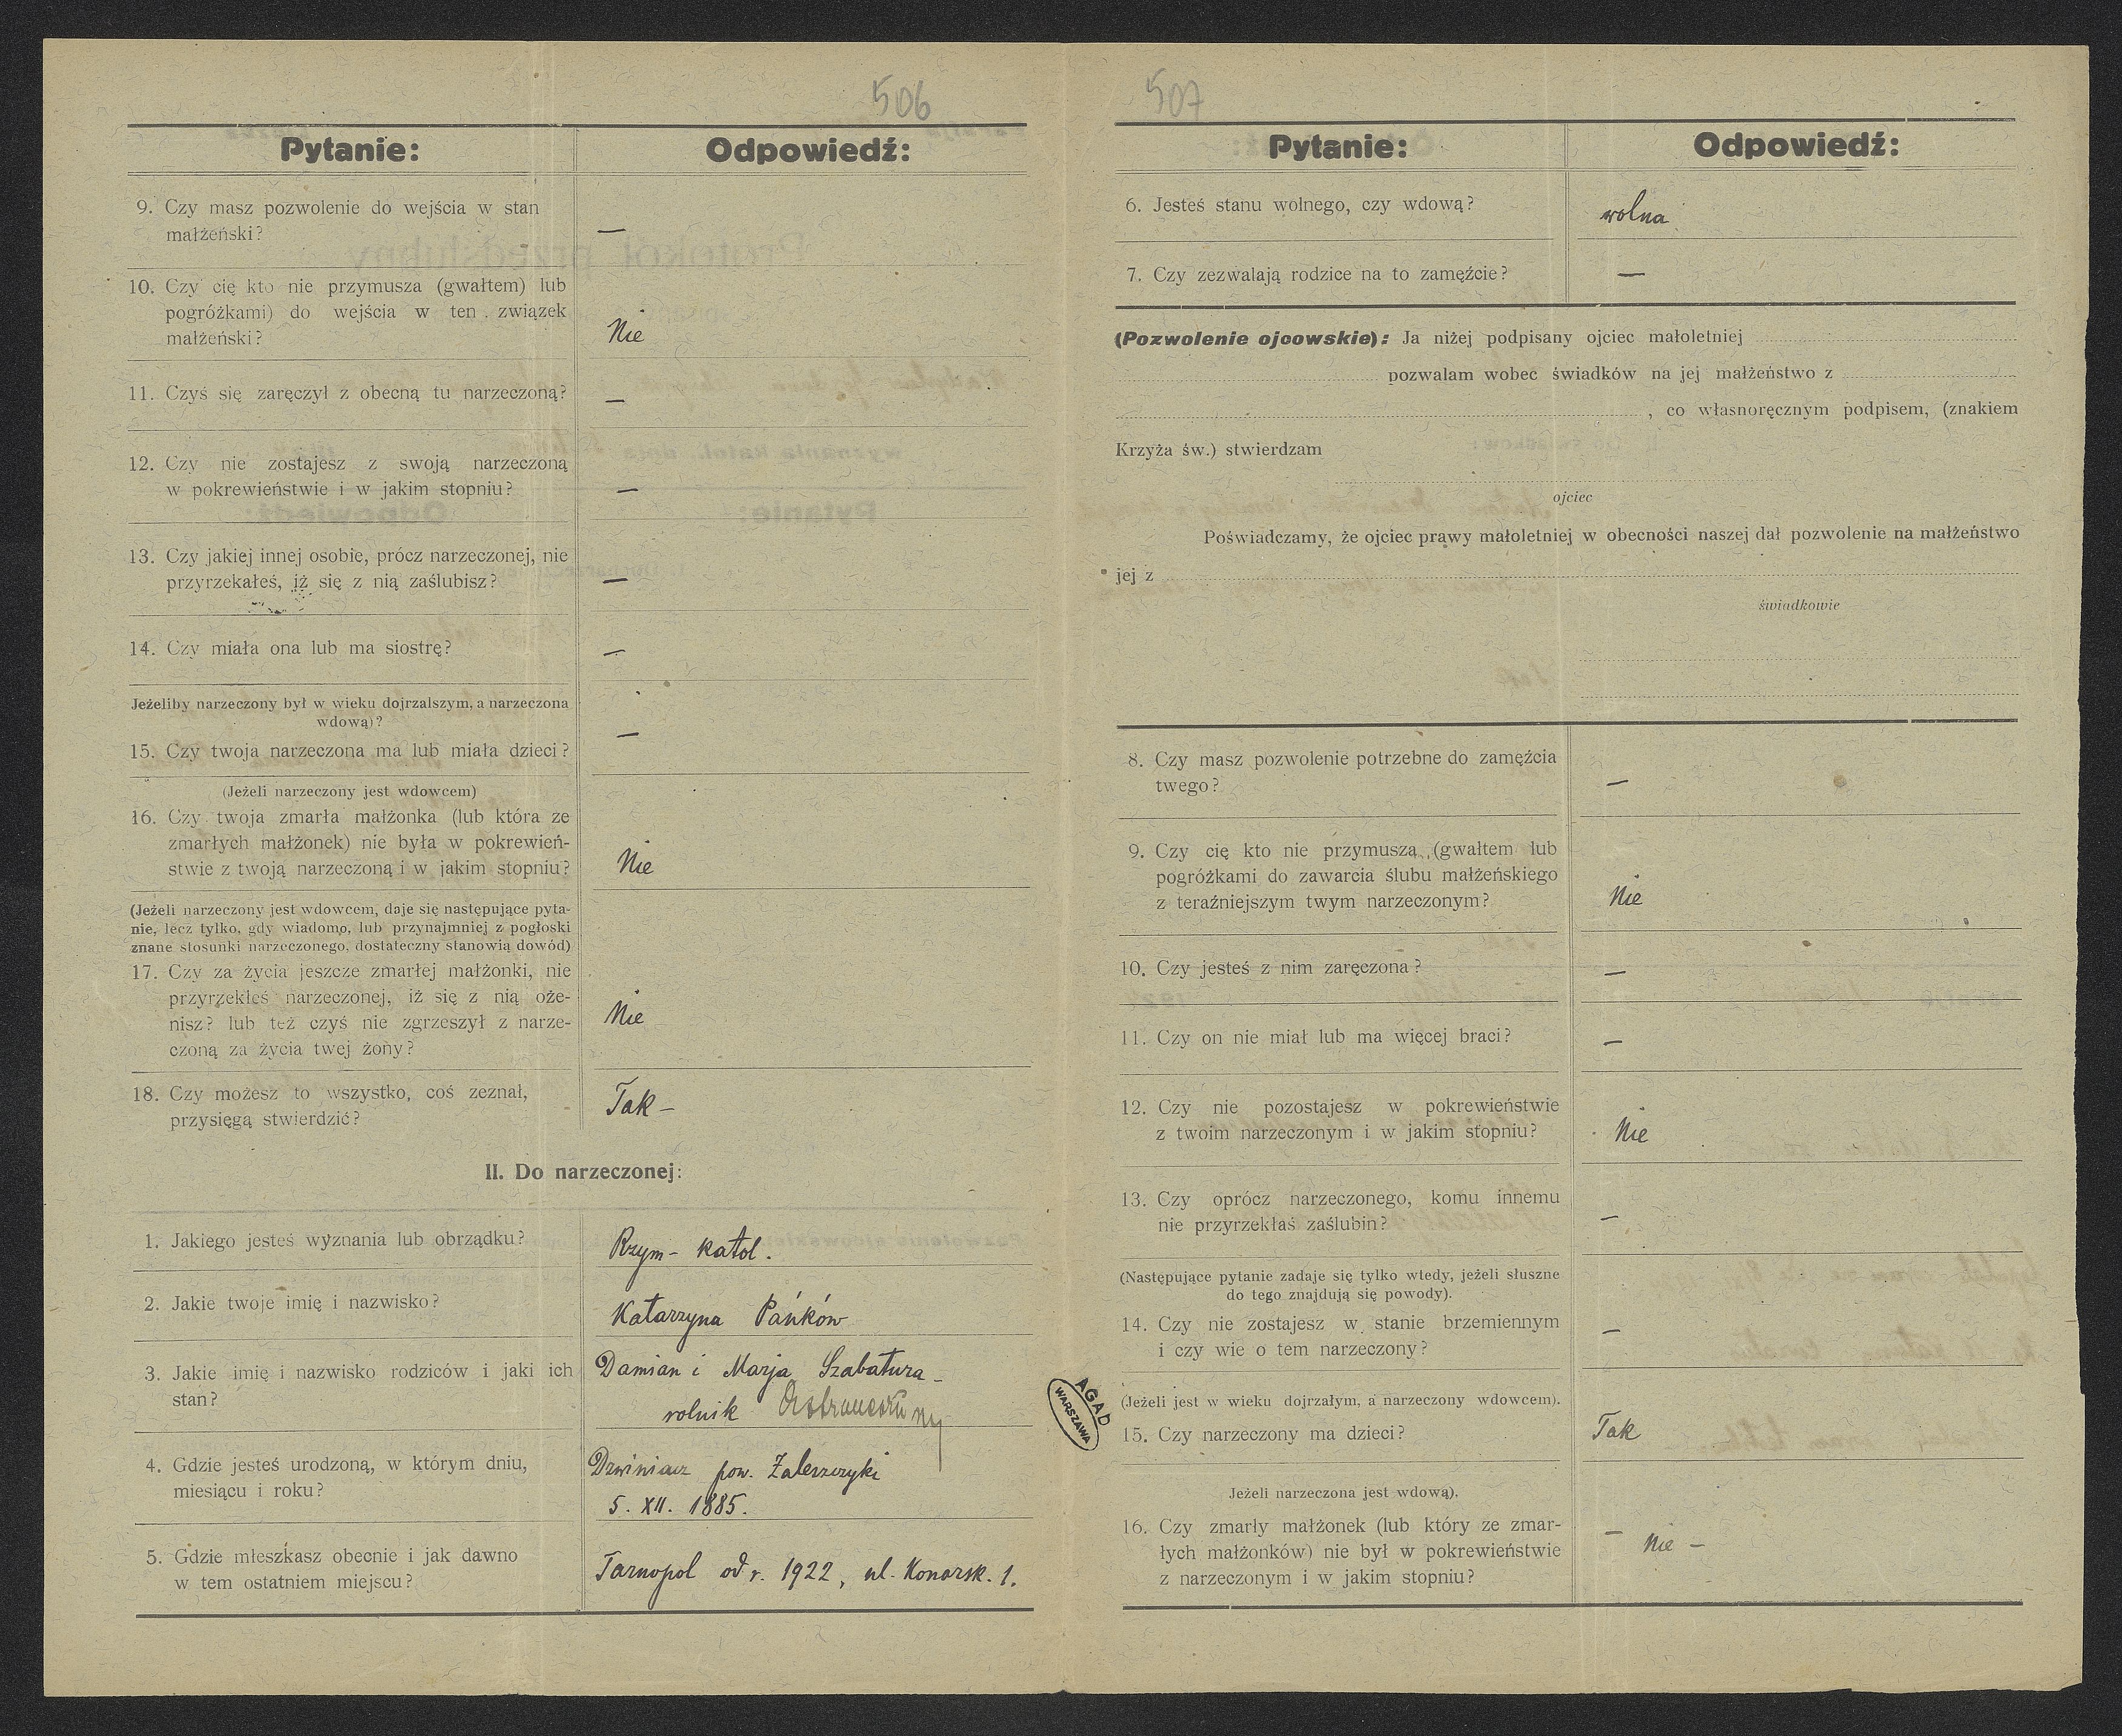 506
Pytanie:
Odpowiedź:
9. Czy masz pozwolenie do wejścia w stan
małżeński?
—
10. Czy cię kto nie przymusza (gwałtem) lub
pogróżkami) do wejścia w ten związek
małżeński?
Nie
11. Czyś się zaręczył z obecną tu narzeczoną?
—
12. Czy nie zostajesz z swoją narzeczoną
w pokrewieństwie i w jakim stopniu?
—
13. Czy jakiej innej osobie, prócz narzeczonej, nie
przyrzekałeś, iż się z nią zaślubisz?
—
14. Czy miała ona lub ma siostrę?
—
Jeżeliby narzeczony był w wieku dojrzalszym, a narzeczona
wdową)?
15. Czy twoja narzeczona ma lub miała dzieci?
—
(Jeżeli narzeczony jest wdowcem)
16. Czy twoja zmarła małżonka (lub która ze
zmarłych małżonek) nie była w pokrewień-
stwie z twoją narzeczoną i w jakim stopniu?
Nie
(Jeżeli narzeczony jest wdowcem, daje się następujące pyta-
nie, lecz tylko, gdy wiadomo, lub przynajmniej z pogłoski
znane stosunki narzeczonego, dostateczny stanowią dowód)
17. Czy za życia jeszcze zmarłej małżonki, nie
przyrzekłeś narzeczonej, iż się z nią oże-
nisz? lub też czyś nie zgrzeszył z narze-
czoną za życia twej żony?
Nie
18. Czy możesz to wszystko, coś zeznał,
przysięgą stwierdzić?
Tak —
II. Do narzeczonej:
1. Jakiego jesteś wyznania lub obrządku?
Rzym - katol.
2. Jakie twoje imię i nazwisko?
Katarzyna Pańków
3. Jakie imię i nazwisko rodziców i jaki ich
stan?
Damian i Marja Szabatura -
rolnik
4. Gdzie jesteś urodzoną, w którym dniu,
miesiącu i roku?
Dzwiniacz pow. Zaleszczyki
5. XII. 1885.
5. Gdzie mieszkasz obecnie i jak dawno
w tem ostatniem miejscu?
Tarnopol od r. 1922, ul. Konarsk. 1.
507
Pytanie:
Odpowiedź:
6. Jesteś stanu wolnego, czy wdową?
wolna
7. Czy zezwalają rodzice na to zamęźcie?
—
(Pozwolenie ojcowskie): Ja niżej podpisany ojciec małoletniej
pozwalam wobec świadków na jej małżeństwo z
, co własnoręcznym podpisem, (znakiem
Krzyża św.) stwierdzam
ojciec
Poświadczamy, że ojciec prawy małoletniej w obecności naszej dał pozwolenie na małżeństwo
jej z
świadkowie
8. Czy masz pozwolenie potrzebne do zamęźcia
twego?
—
9. Czy cię kto nie przymusza (gwałtem lub
pogróżkami do zawarcia ślubu małżeńskiego
z teraźniejszym twym narzeczonym?
Nie
10. Czy jesteś z nim zaręczona?
—
11. Czy on nie miał lub ma więcej braci?
—
12. Czy nie pozostajesz w pokrewieństwie
z twoim narzeczonym i w jakim stopniu?
Nie
13. Czy oprócz narzeczonego, komu innemu
nie przyrzekłaś zaślubin?
—
(Następujące pytanie zadaje się tylko wtedy, jeżeli słuszne
do tego znajdują się powody).
14. Czy nie zostajesz w stanie brzemiennym
i czy wie o tem narzeczony?
—
(Jeżeli jest w wieku dojrzałym, a narzeczony wdowcem).
15. Czy narzeczony ma dzieci?
Tak
Jeżeli narzeczona jest wdową).
16. Czy zmarły małżonek (lub który ze zmar-
łych małżonków) nie był w pokrewieństwie
z narzeczonym i w jakim stopniu?
— Nie —
AGAD
WARSZAWA